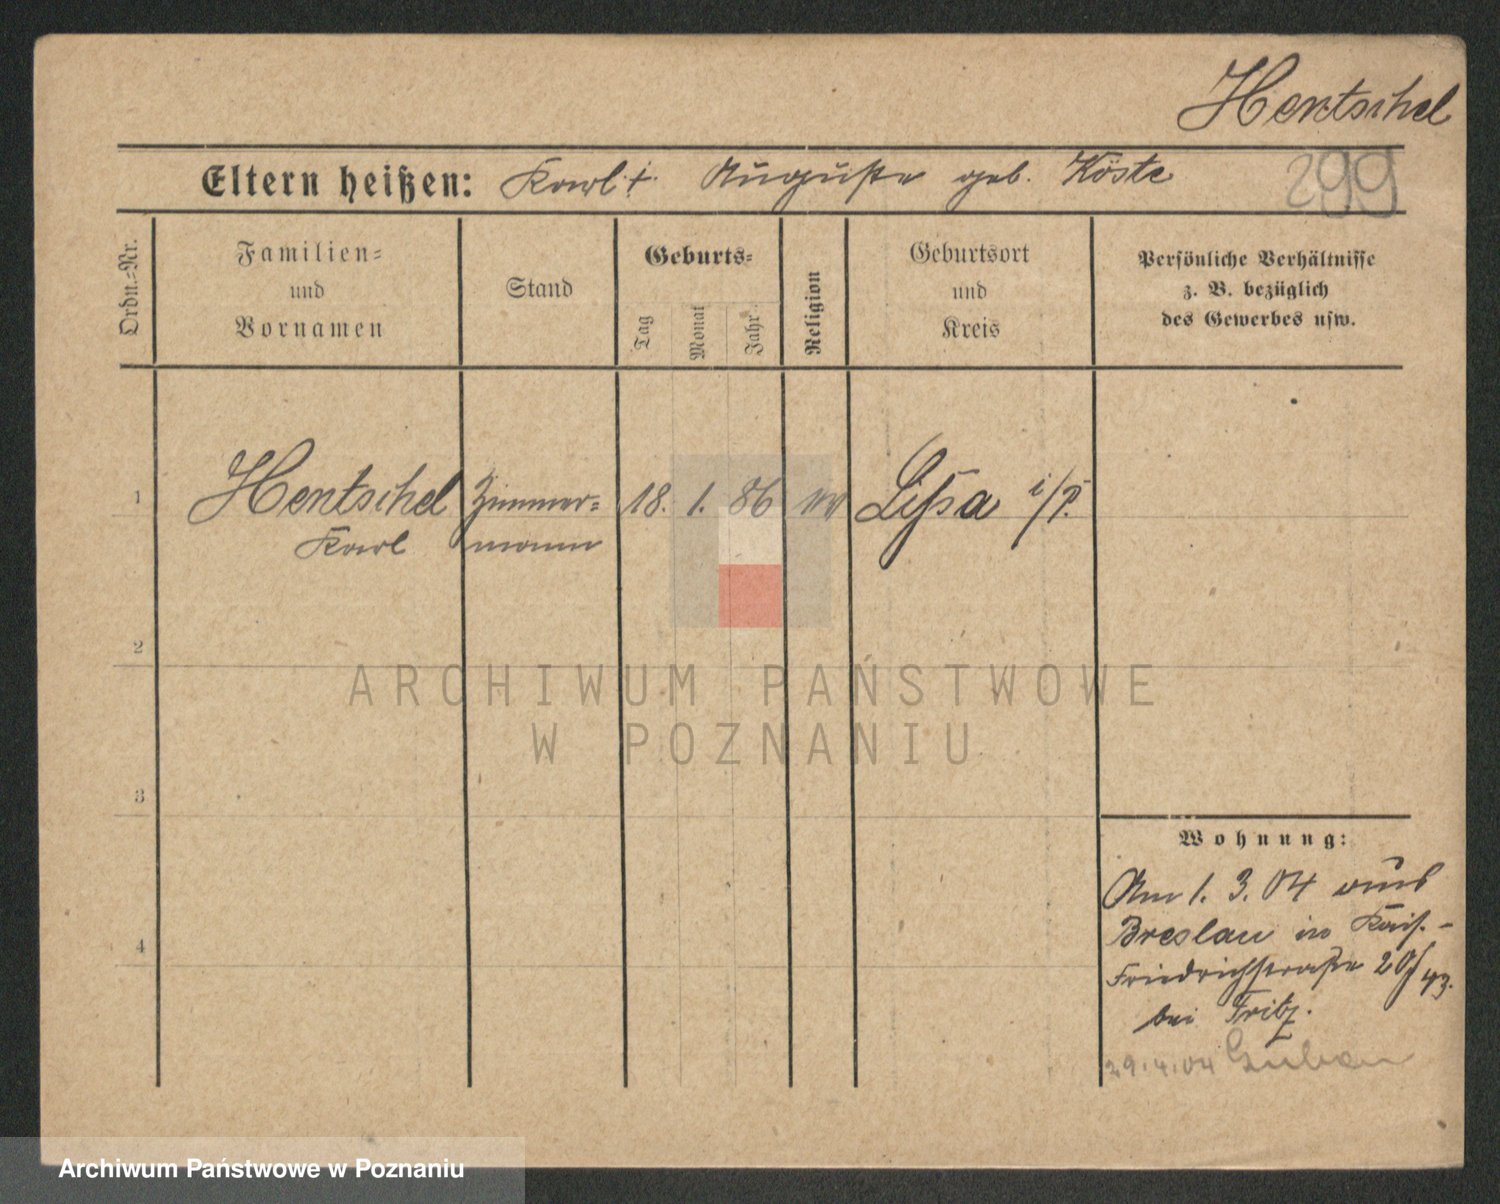 Hentschel
299
Eltern heißen: Karl + Auguste geb. Köste
Ordn.-Nr.
Familien-
und
Vornamen
Stand
Geburts-
Tag
Monat
Jahr
Religion
Geburtsort
und
Kreis
Persönliche Verhältnisse
z. B. bezüglich
des Gewerbes usw.
1 Hentschel Zimmer= 18. 1. 86 Lissa i/P.
Karl mann
2
3
4
ARCHIWUM PAŃSTWOWE
W POZNANIU
Wohnung:
Am 1. 3. 04 aus
Breslau in Kais.-
Friedrichstraße 20/43.
bei Fritz.
29.4.04
Archiwum Państwowe w Poznaniu